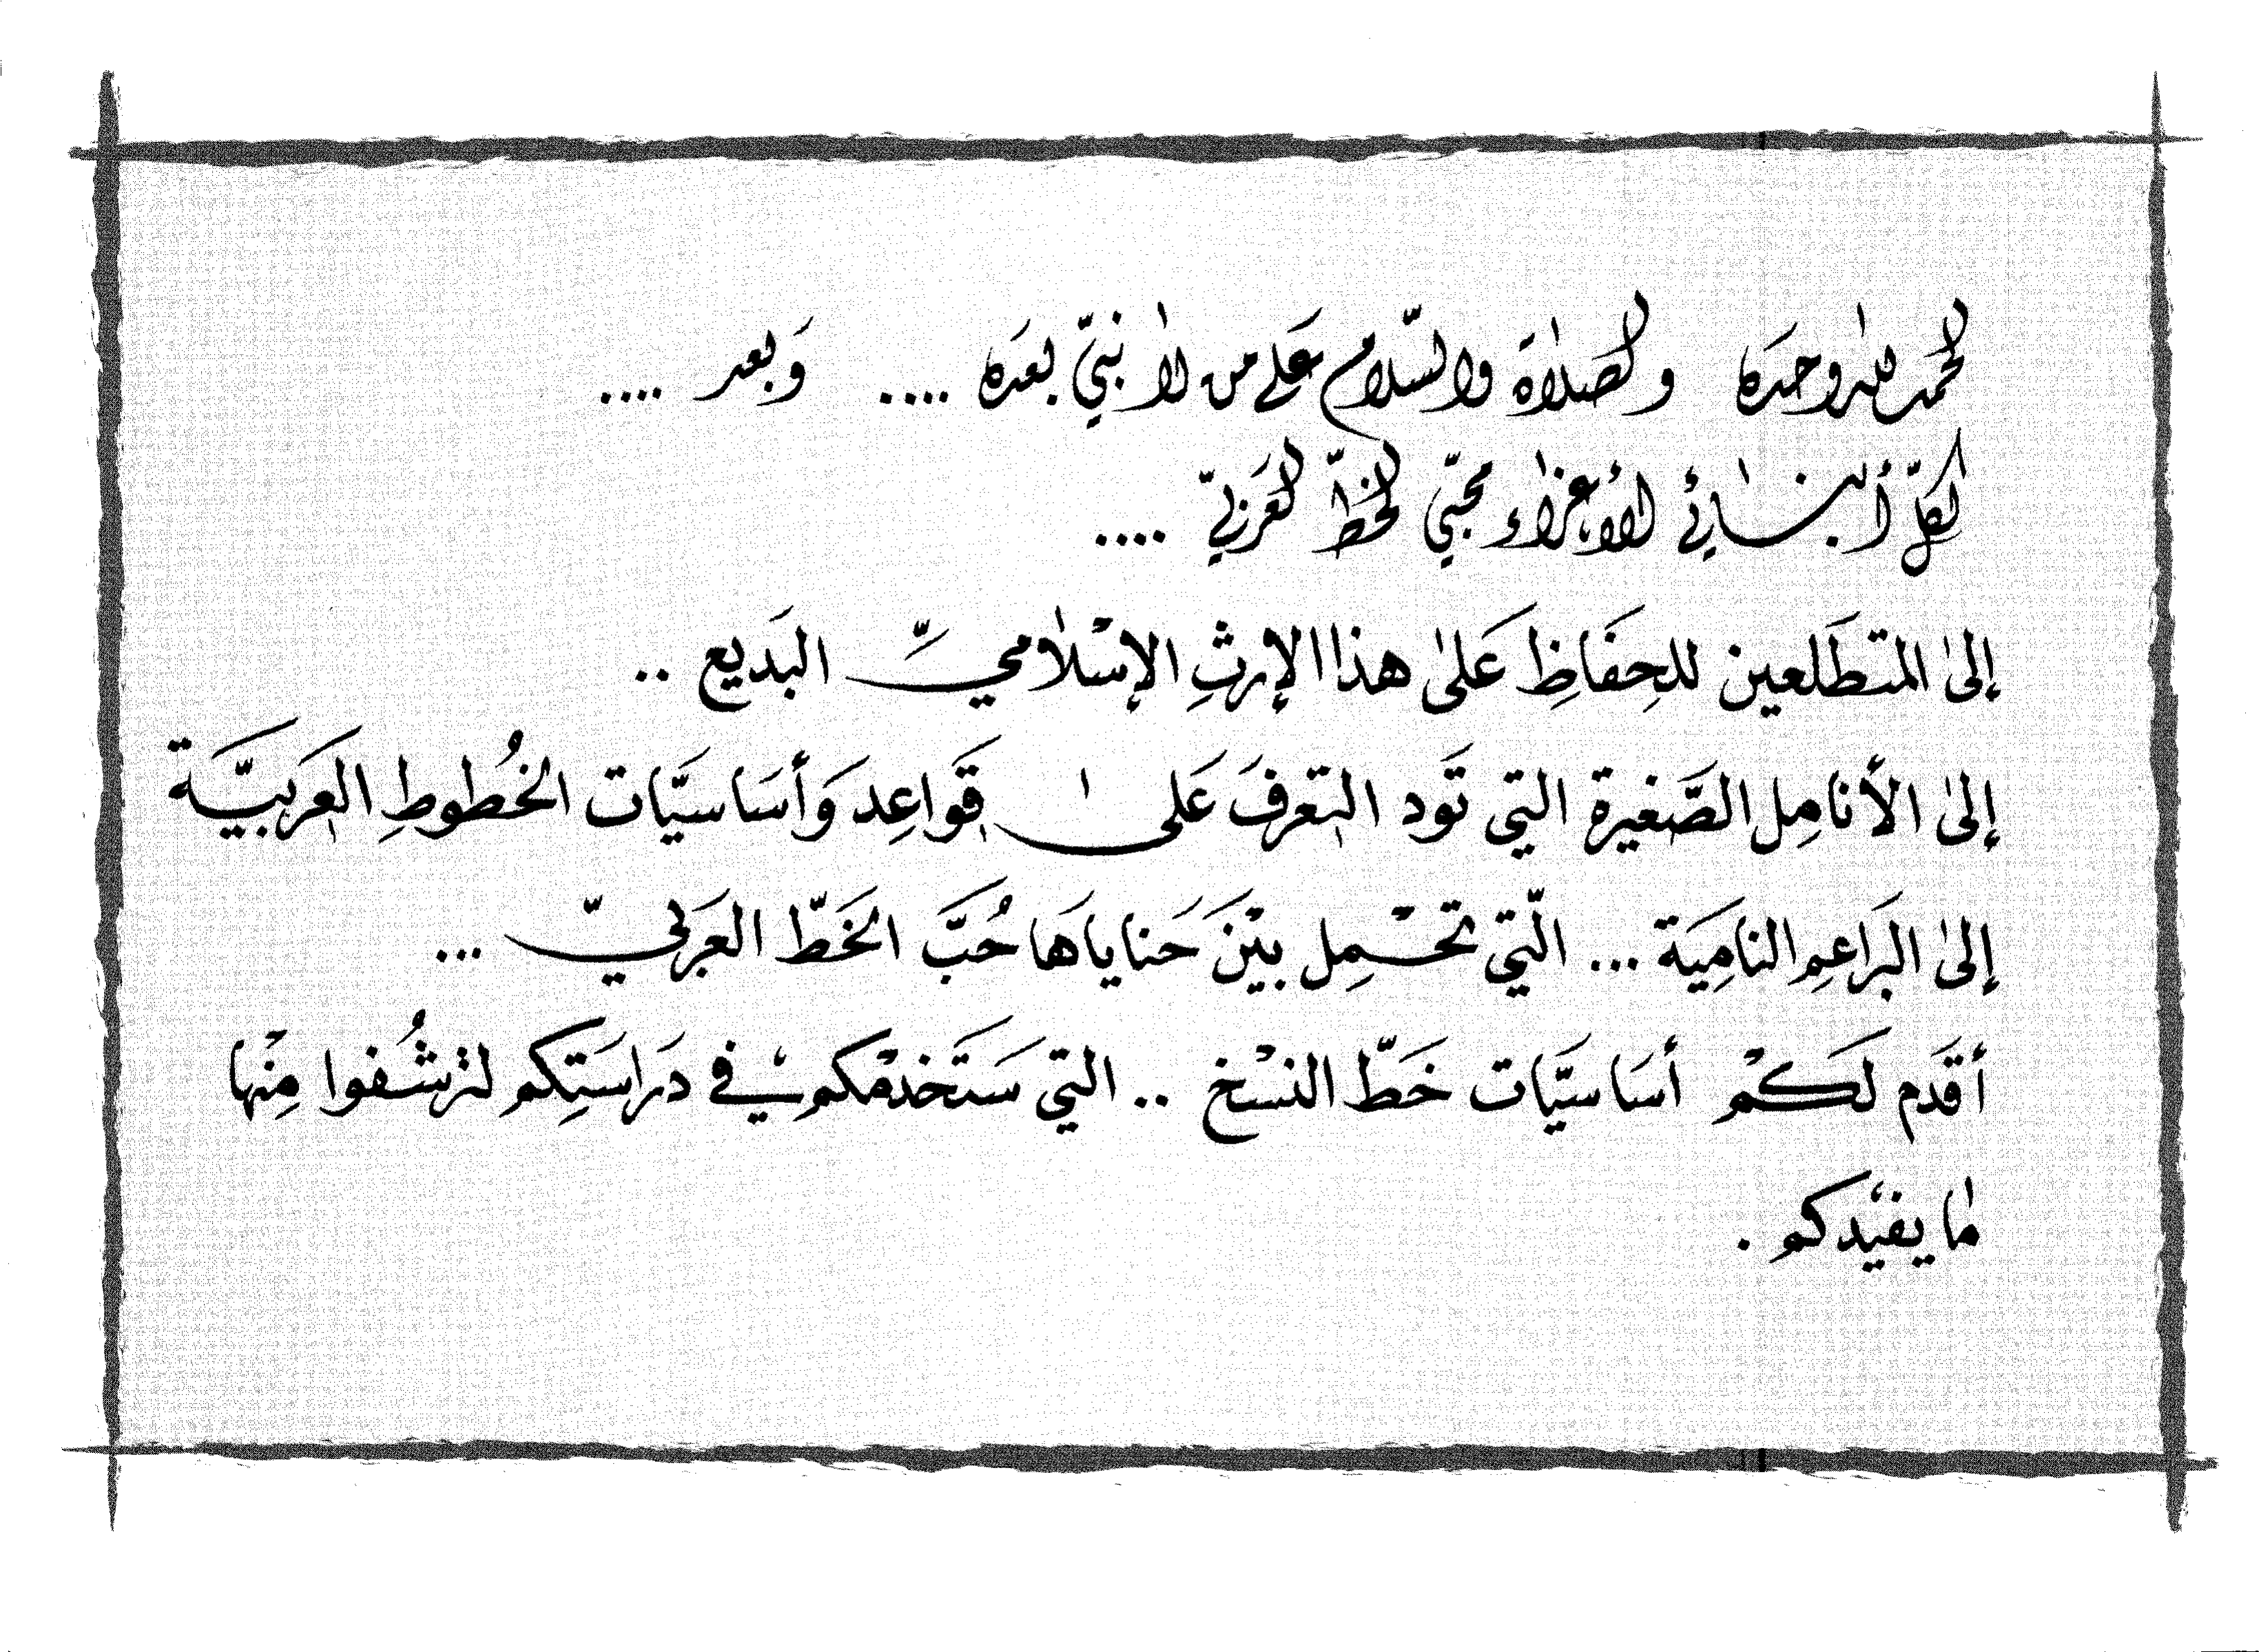 الحمد لله وحده والصلاة والسّلام عَلى من لا نبيّ بعدَه .... وَبعد ....
لكلّ أبنائي الأعزاء محبّي الخطّ العَربيّ ....
إلىٰ المتطَلعين للحِفَاظِ عَلىٰ هذا الإرثِ الإسْلامي البَديع ..
إلىٰ الأنامِل الصَّغيرة التي تَود التعرفَ عَلىٰ قَواعِد وَأسَاسيَّات الخُطوطِ العَربيَّة
إلىٰ البَراعِم النامِيَة ... الّتي تحْمِل بيْنَ حَناياهَا حُبَّ الخَطّ العَربيّ ...
أقَدم لَكمْ أسَاسيَّات خَطّ النسْخ .. التي سَتَخدمْكم في دَراسَتِكم لترشُفوا مِنْها
ما يفيْدكم .